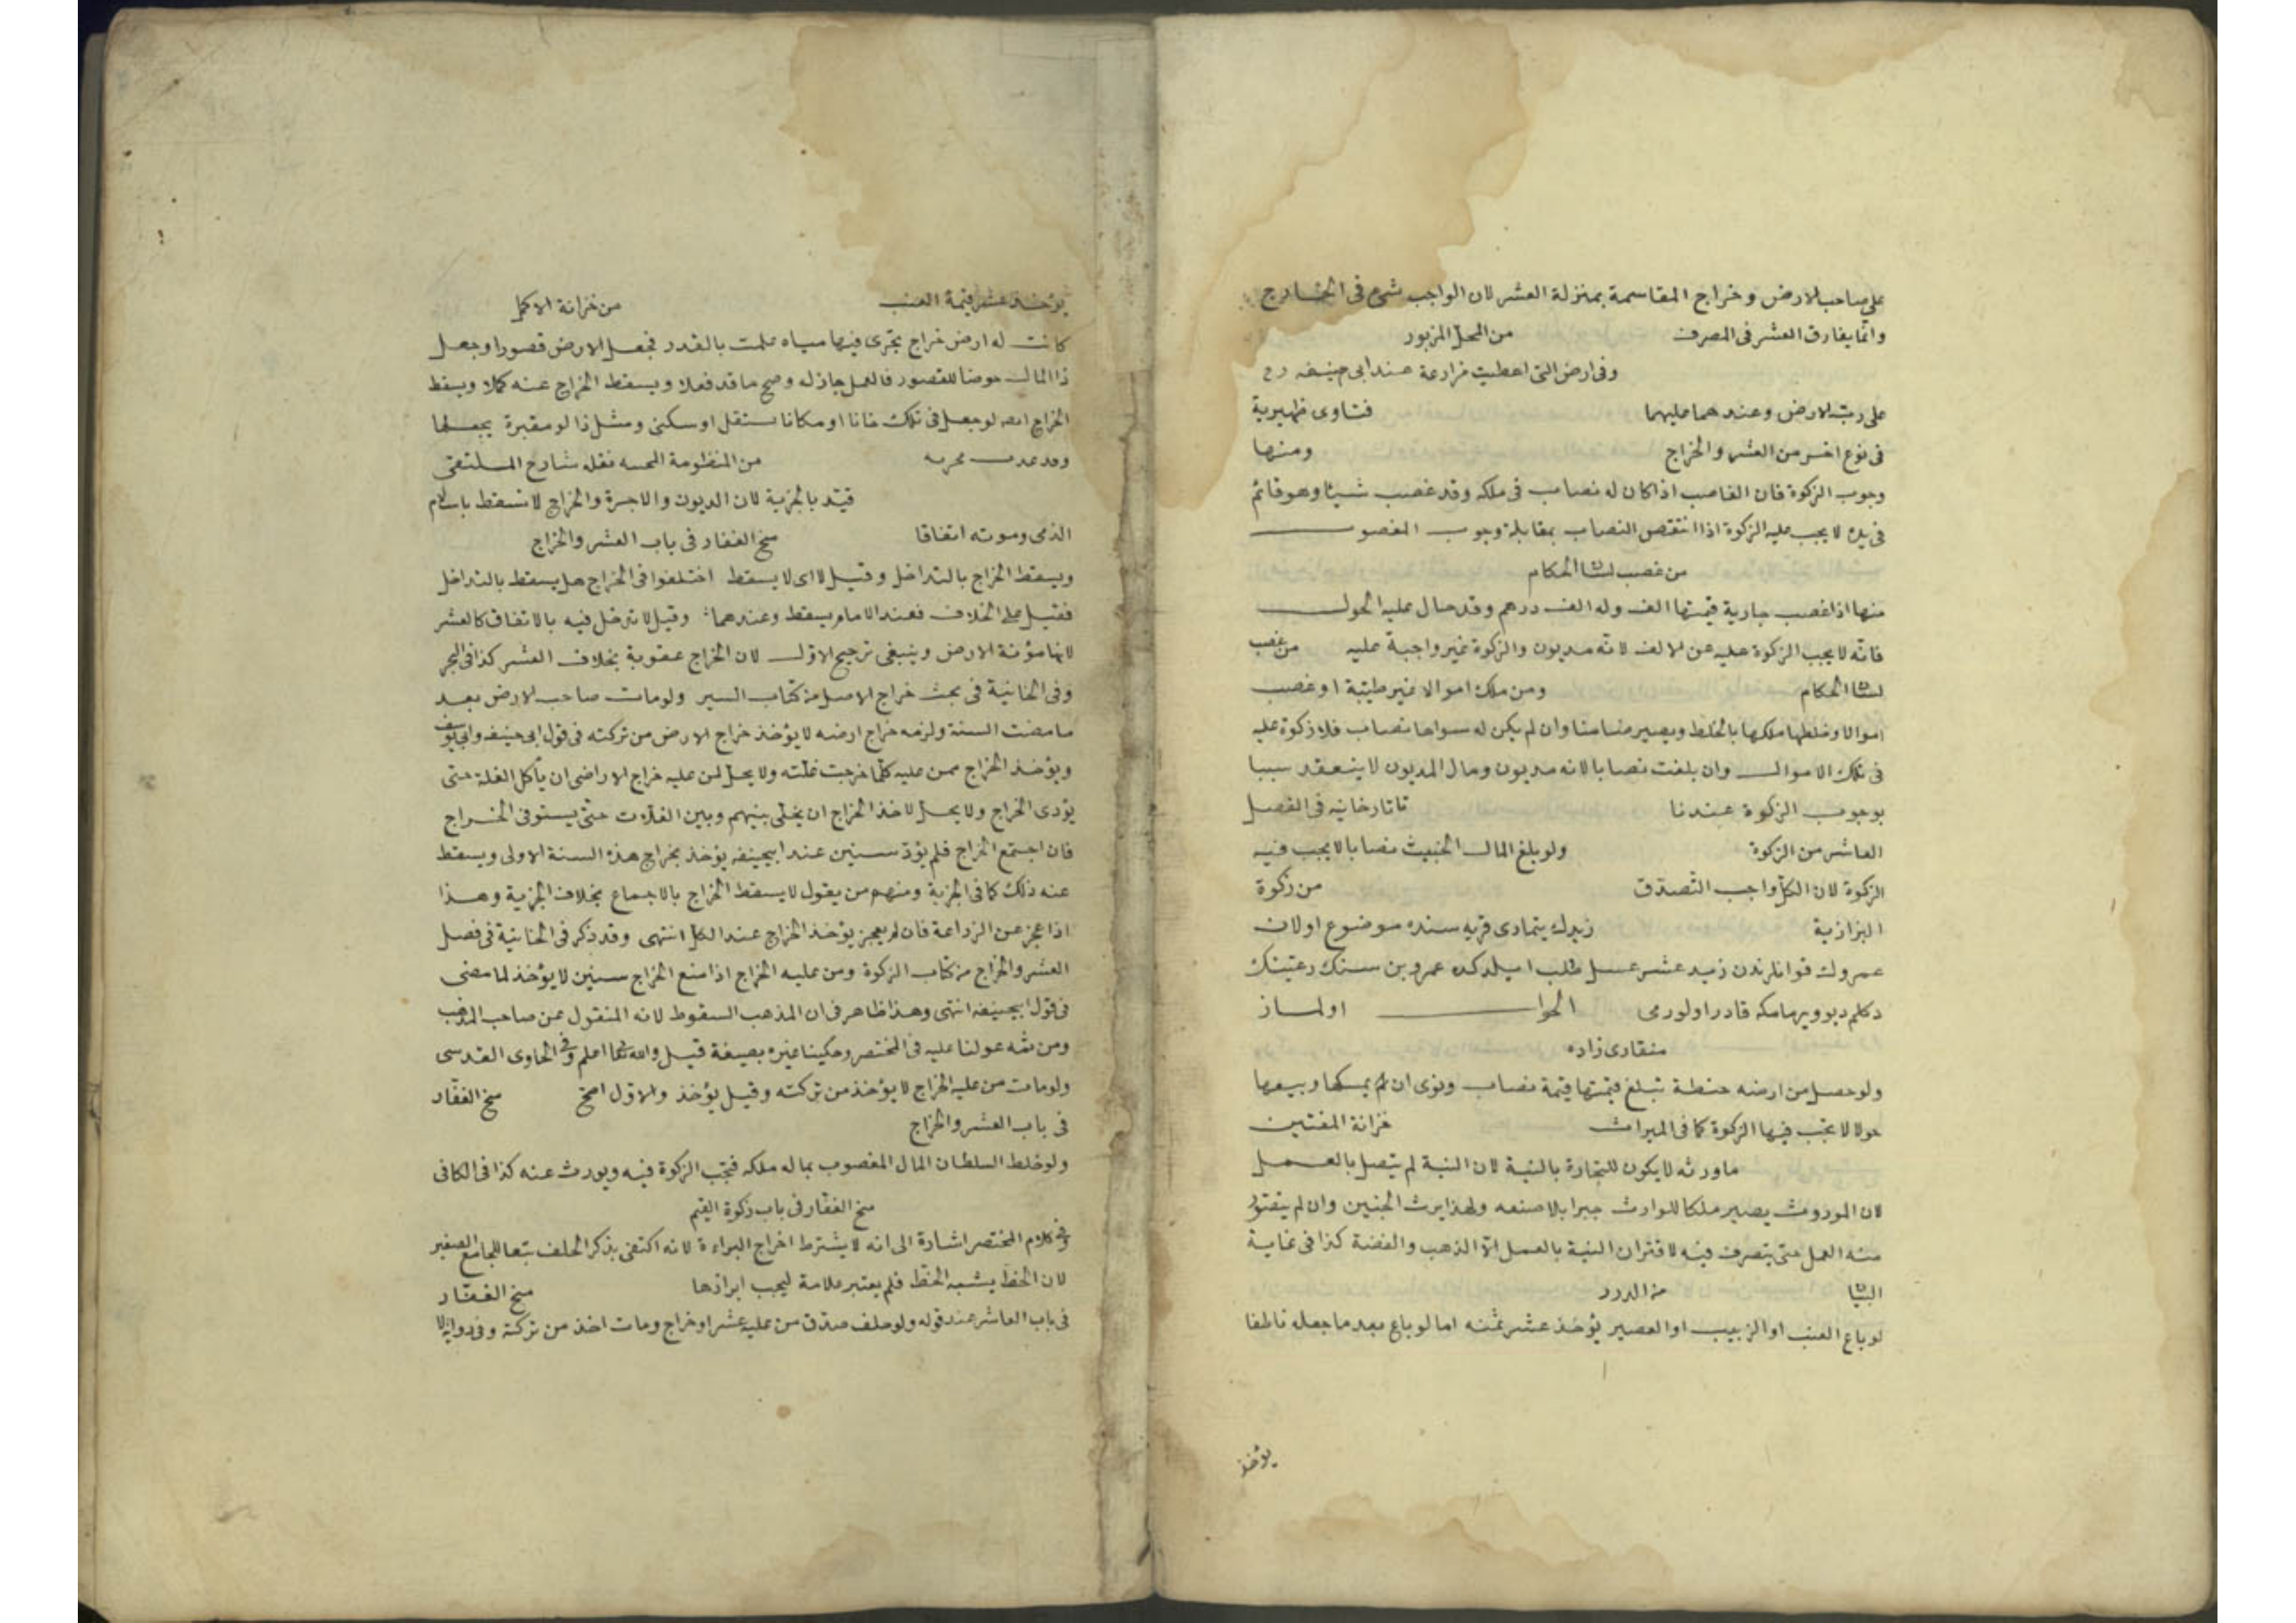 على صاحب الارض وخراج المقاسمة بمنزلة العشر لان الواجب شئ فى الخارج
وانما يفارق العشر فى المصرف من المحل المزبور
وفى ارض التى اعطيت مزارعة عند ابى حنيفه رح
على رب الارض وعندهما عليهما فتاوى ظهيرية
فى نوع اخر من العشر والخراج ومنها
وجوب الزكوة فان الغاصب اذا كان له نصاب فى ملكه وقد غصب شيئا وهو قائم
فى يده لا يجب عليه الزكوة اذا انتقص النصاب بمقابلة وجوب المغصوب
من غصب لسان الحكام
منها اذا غصب جارية قيمتها الف وله الف درهم وقد حال عليه الحول
فانه لا يجب الزكوة عليه عن الالف لانه مديون والزكوة غير واجبة عليه من غصب
لسان الحكام ومن ملك اموالا غير طيبة او غصب
اموالا وخلطها ملكها بالخلط ويصير ضامنا وان لم يكن له سواها نصاب فلا زكوة عليه
فى تلك الاموال وان بلغت نصابا لانه مديون ومال المديون لا ينعقد سببا
بوجوب الزكوة عندنا تاتارخانيه فى الفصل
العاشر من الزكوة ولو بلغ المال الخبيث نصابا لا يجب فيه
الزكوة لان الكل واجب التصدق من زكوة
البزازية زيدك يتمادى قريه سنده موضوع اولان
عمروك قوانلرندن زيد عشر عسل طلب ايلدكده عمرو بن سنك رعيتك
دكلم ديو ويرمامكه قادر اولورمى الجواب اولماز
منقارى زاده
ولو حصل من ارضه حنطة تبلغ قيمتها قيمة نصاب ونوى ان يمسكها ويبيعها
حولا لا تجب فيها الزكوة كما فى الميراث خزانة المفتين
ماورثه لا يكون للتجارة بالنية لان النية لم يتصل بالعمل
لان الموروث يصير ملكا للوارث جبرا بلا صنعه ولهذا يرث الجنين وان لم يتصور
منه العمل حتى يتصرف فيه لاقتران النية بالعمل الا الذهب والفضة كذا فى غاية
البيان من الدرر
لو باع العنب او الزبيب او العصير يؤخذ عشر ثمنه اما لو باع بعد ما جعله ناطفا
يؤخذ
يؤخذ عشر قيمة العنب من خزانة الاكمل
كانت له ارض خراج تجرى فيها مياه علمت بالقدر فجعل الارض قصورا وجعل
ذا المال حوضا للقصور فالعمل جاز له وصح ما قد فعلا ويسقط الخراج عنه كملا ويسقط
الخراج لو جعل فى تلك خانا او مكانا يستقل او سكنى ومثل ذا لو مقبرة يجعلها
من المنظومة نقله شارح الملتقى
قيد بالجزية لان الديون والاجرة والخراج لا تسقط باسلام
الذمى وموته اتفاقا منح الغفار فى باب العشر والخراج
ويسقط الخراج بالتداخل وقيل لا اى لا يسقط اختلفوا فى الخراج هل يسقط بالتداخل
فقيل على الخلاف فعند الامام يسقط وعندهما لا وقيل لا تدخل فيه بالاتفاق كالعشر
لانها مؤنة الارض وينبغى ترجيح الاول لان الخراج عقوبة بخلاف العشر كذا فى البحر
وفى الخانية فى بحث خراج الاصل من كتاب السير ولو مات صاحب الارض بعد
ما مضت السنة ولزمه خراج ارضه لا يؤخذ خراج الارض من تركته فى قول ابى حنيفه وابى يوسف
ويؤخذ الخراج ممن عليه كلما خرجت غلته ولا يحل لمن عليه خراج الاراضى ان يأكل الغلة حتى
يؤدى الخراج ولا يحل لاخذ الخراج ان يخلى بينهم وبين الغلات حتى يستوفى الخراج
فان اجتمع الخراج فلم يؤد سنين عند ابيحنيفه يؤخذ بخراج هذه السنة الاولى ويسقط
عنه ذلك كما فى الجزية ومنهم من يقول لا يسقط الخراج بالاجماع بخلاف الجزية وهذا
اذا عجز عن الزراعة فان لم يعجز يؤخذ الخراج عند الكل انتهى وقد ذكر فى الخانية فى فصل
العشر والخراج من كتاب الزكوة ومن عليه الخراج اذا منع الخراج سنين لا يؤخذ لما مضى
فى قول ابيحنيفه انتهى وهذا ظاهر فى ان المذهب السقوط لانه المنقول عن صاحب المذهب
ومن ثمه عولنا عليه فى المختصر وحكينا غيره بصيغة قيل والله تعالى اعلم وفى الحاوى القدسى
ولو مات من عليه الخراج لا يؤخذ من تركته وقيل يؤخذ والاول اصح منح الغفار
فى باب العشر والخراج
ولو خلط السلطان المال المغصوب بماله ملكه فتجب الزكوة فيه ويورث عنه كذا فى الكافى
منح الغفار فى باب زكوة الغنم
وفى كلام المختصر اشارة الى انه لا يشترط اخراج البراءة لانه اكتفى بذكر الحلف تبعا للجامع الصغير
لان الخط يشبه الخط فلم يعتبر علامة ليجب ابرازها منح الغفار
فى باب العاشر عند قوله ولو حلف صدق من عليه عشر او خراج ومات اخذ من تركته وفى رواية لا